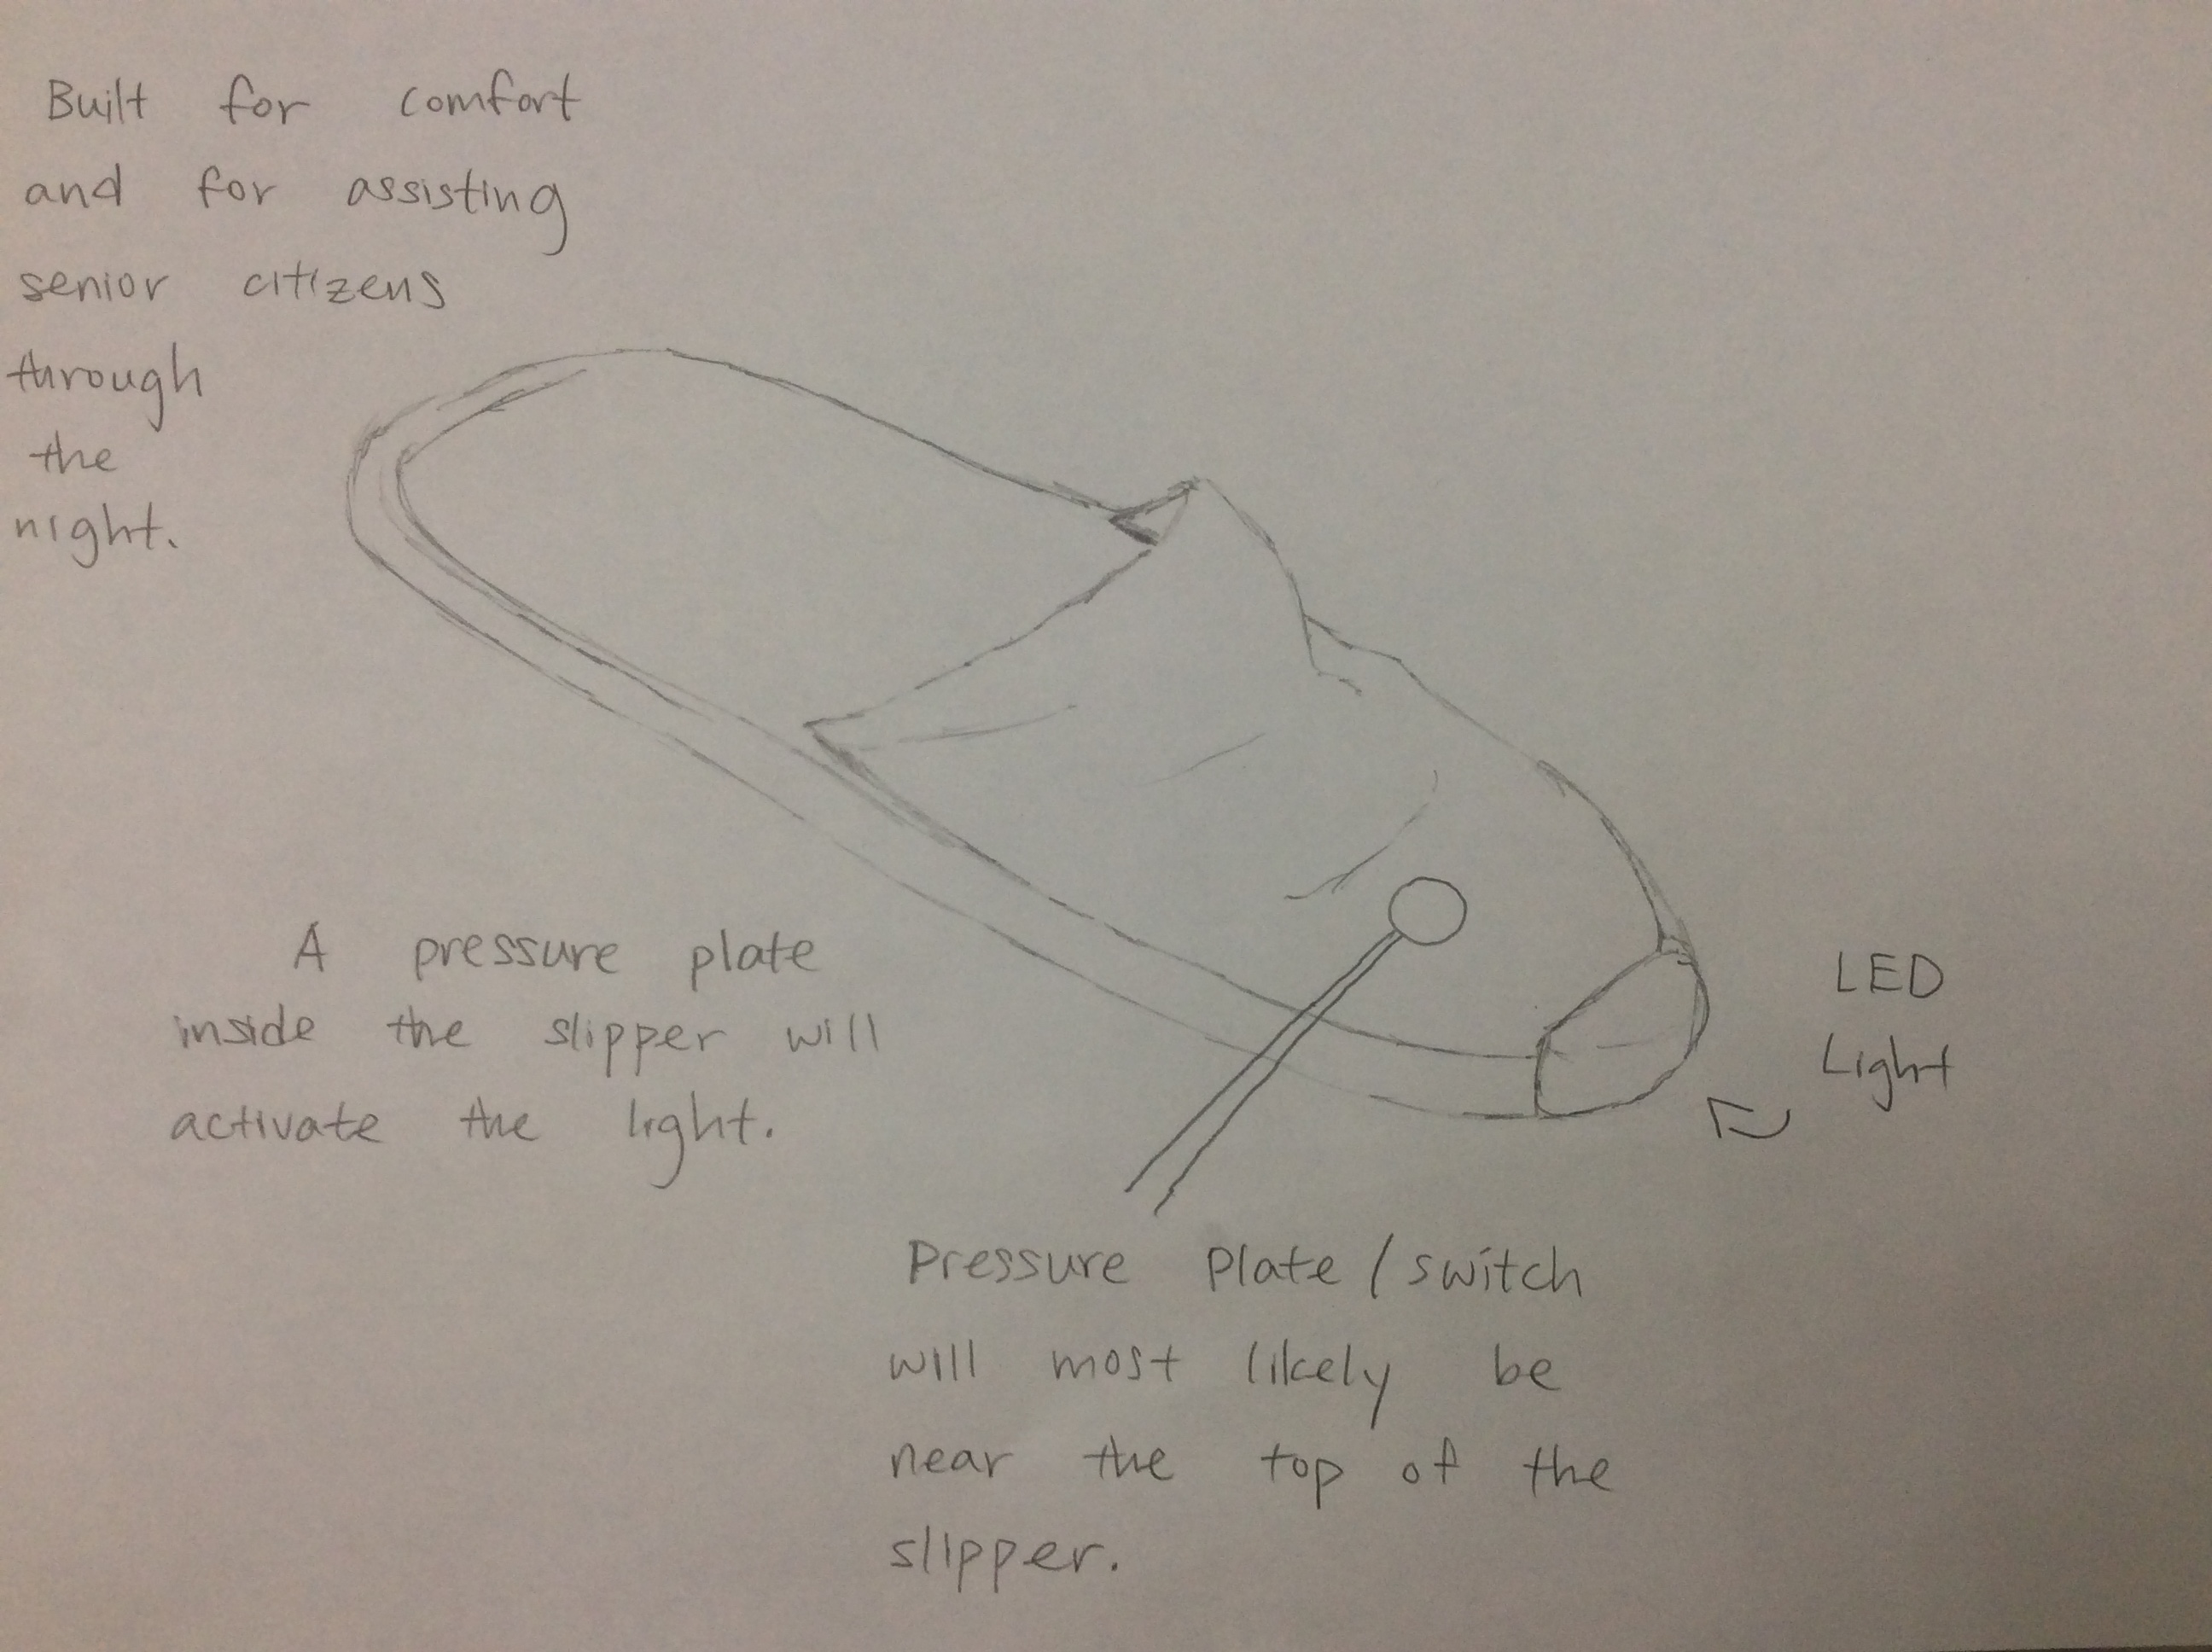 Built for comfort
and for assisting
senior citizens
through
the
night.
A pressure plate
inside the slipper will
activate the light.
LED
Light
Pressure Plate / switch
will most likely be
near the top of the
slipper.